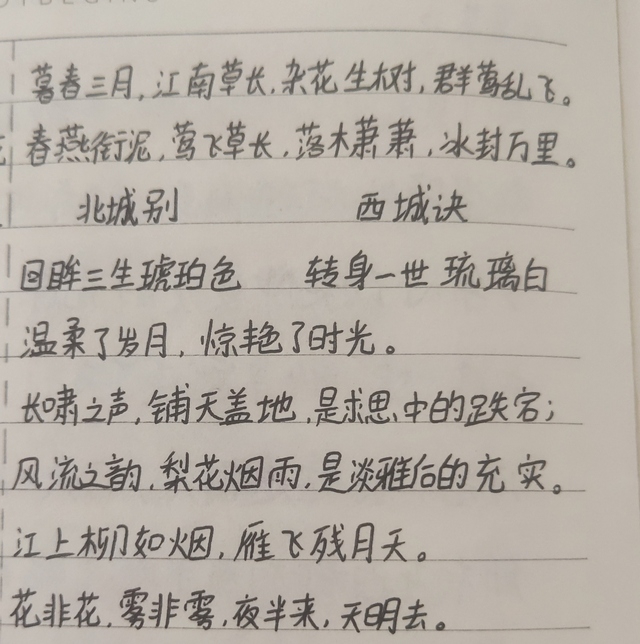 暮春三月,江南草长,杂花生树,群莺乱飞。
春燕衔泥,莺飞草长,落木萧萧,冰封万里。
北城别 西城诀
回眸三生琥珀色 转身一世琉璃白
温柔了岁月,惊艳了时光。
长啸之声,铺天盖地,是求思中的跌宕;
风流之韵,梨花烟雨,是淡雅后的充实。
江上柳如烟,雁飞残月天。
花非花,雾非雾,夜半来,天明去。